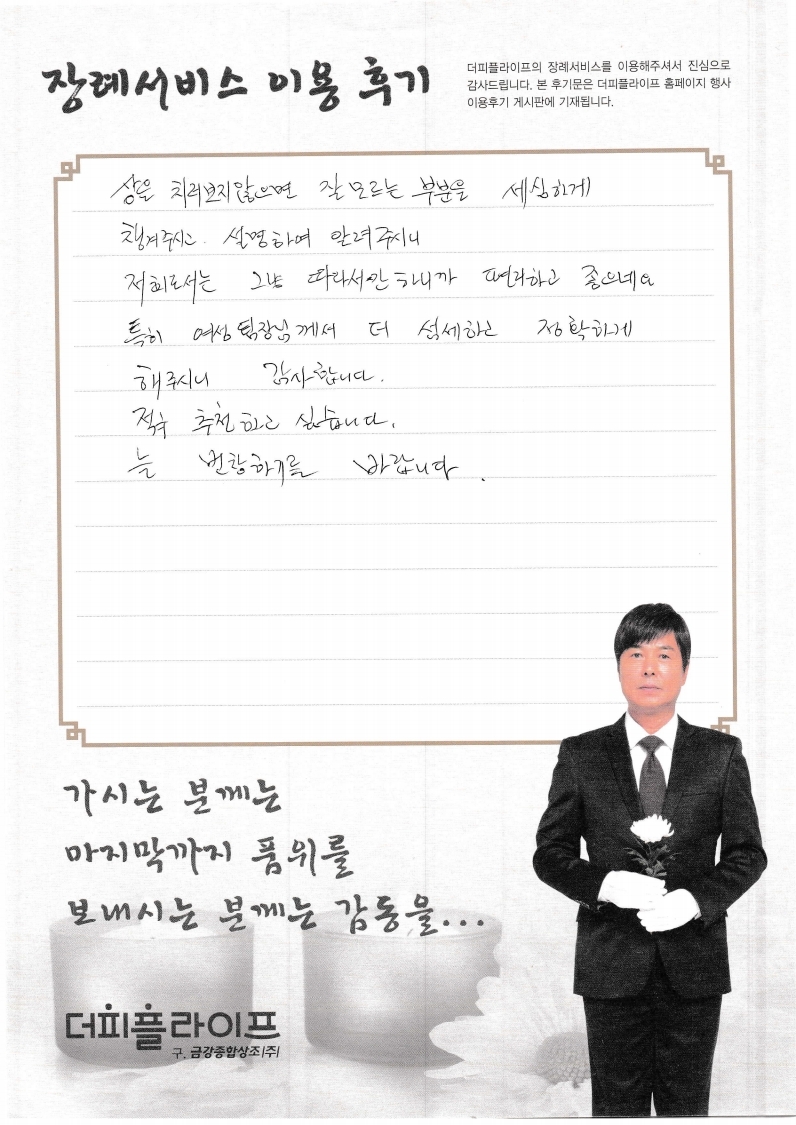 장례서비스 이용 후기
더피플라이프의 장례서비스를 이용해주셔서 진심으로
감사드립니다. 본 후기문은 더피플라이프 홈페이지 행사
이용후기 게시판에 기재됩니다.
상을 치러보지않으면 잘 모르는 부분을 세심하게
챙겨주시고 설명하여 알려주시니
저희로서는 그냥 따라서만 하니까 편리하고 좋으네요
특히 여성팀장님께서 더 섬세하고 정확하게
해주시니 감사합니다.
적극 추천하고 싶습니다.
늘 번창하기를 바랍니다.
가시는 분께는
마지막까지 품위를
보내시는 분께는 감동을...
더피플라이프
구. 금강종합상조(주)